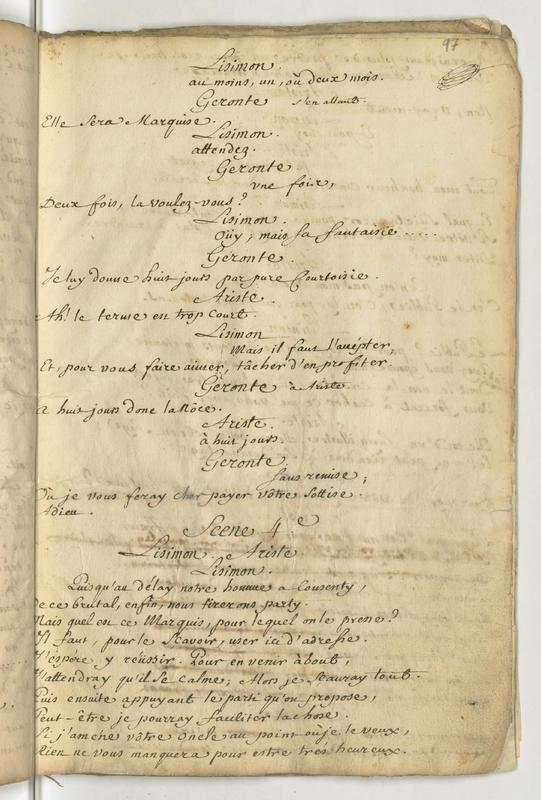 97
Lisimon.
au moins, un, où deux mois.
Geronte s'en allant.
Elle sera Marquise.
Lisimon.
attendez.
Geronte.
vne fois,
Deux fois, la voulez-vous?
Lisimon.
Oüy; mais sa fantaisie .....
Geronte.
Je luy donne huit jours par pure Courtoisie.
Ariste.
Ah! le terme en trop Court.
Lisimon
Mais il faut l'accépter,
Et, pour vous faire aimer, tâcher d'en profiter.
Géronte à Ariste.
A huit jours donc la Nôce.
Ariste.
à huit jours.
Geronte.
sans remise;
Où je vous feray cher payer vôtre Sottise.
Adieu.
Scene 4.e
Lisimon. e Ariste
Lisimon.
Puisqu'au délay notre homme a Consenty,
De ce brutal, enfin, nous tirerons party.
Mais quel est ce Marquis, pour lequel on le presse?
Il faut, pour le Scavoir, user ici d'adresse.
J'espére y réüssir. Pour en venir àbout,
J'attendray qu'il se Calme; Alors je Scauray tout.
Puis ensuite appuyant le parti qu'on propose,
Peut-être je pourray faciliter la chose.
Si j'améne vôtre Oncle au point où je le veux,
Rien ne vous manquera pour estre trés heureux.